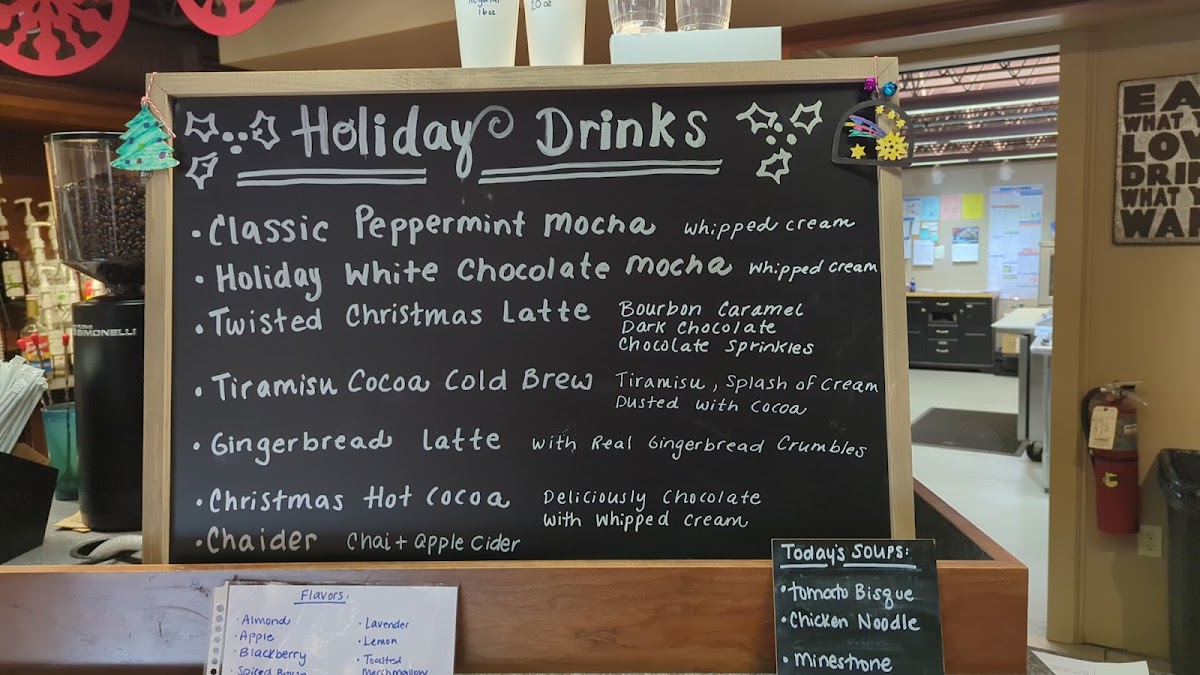 Regular
16oz
20oz
Holiday Drinks
• Classic Peppermint Mocha whipped cream
• Holiday White Chocolate Mocha whipped cream
• Twisted Christmas Latte Bourbon Caramel
Dark Chocolate
Chocolate Sprinkles
• Tiramisu Cocoa Cold Brew Tiramisu, Splash of Cream
Dusted with Cocoa
• Gingerbread Latte with Real Gingerbread Crumbles
• Christmas Hot Cocoa Deliciously Chocolate
with Whipped Cream
• Chaider Chai + Apple Cider
SIMONELLI
Flavors:
• Almond
• Apple
• Blackberry
• Spiced Brown
• Lavender
• Lemon
• Toasted
Marshmallow
Today's Soups:
• Tomato Bisque
• Chicken Noodle
• Minestrone
EA
WHAT Y
LOV
DRIN
WHAT Y
WAN